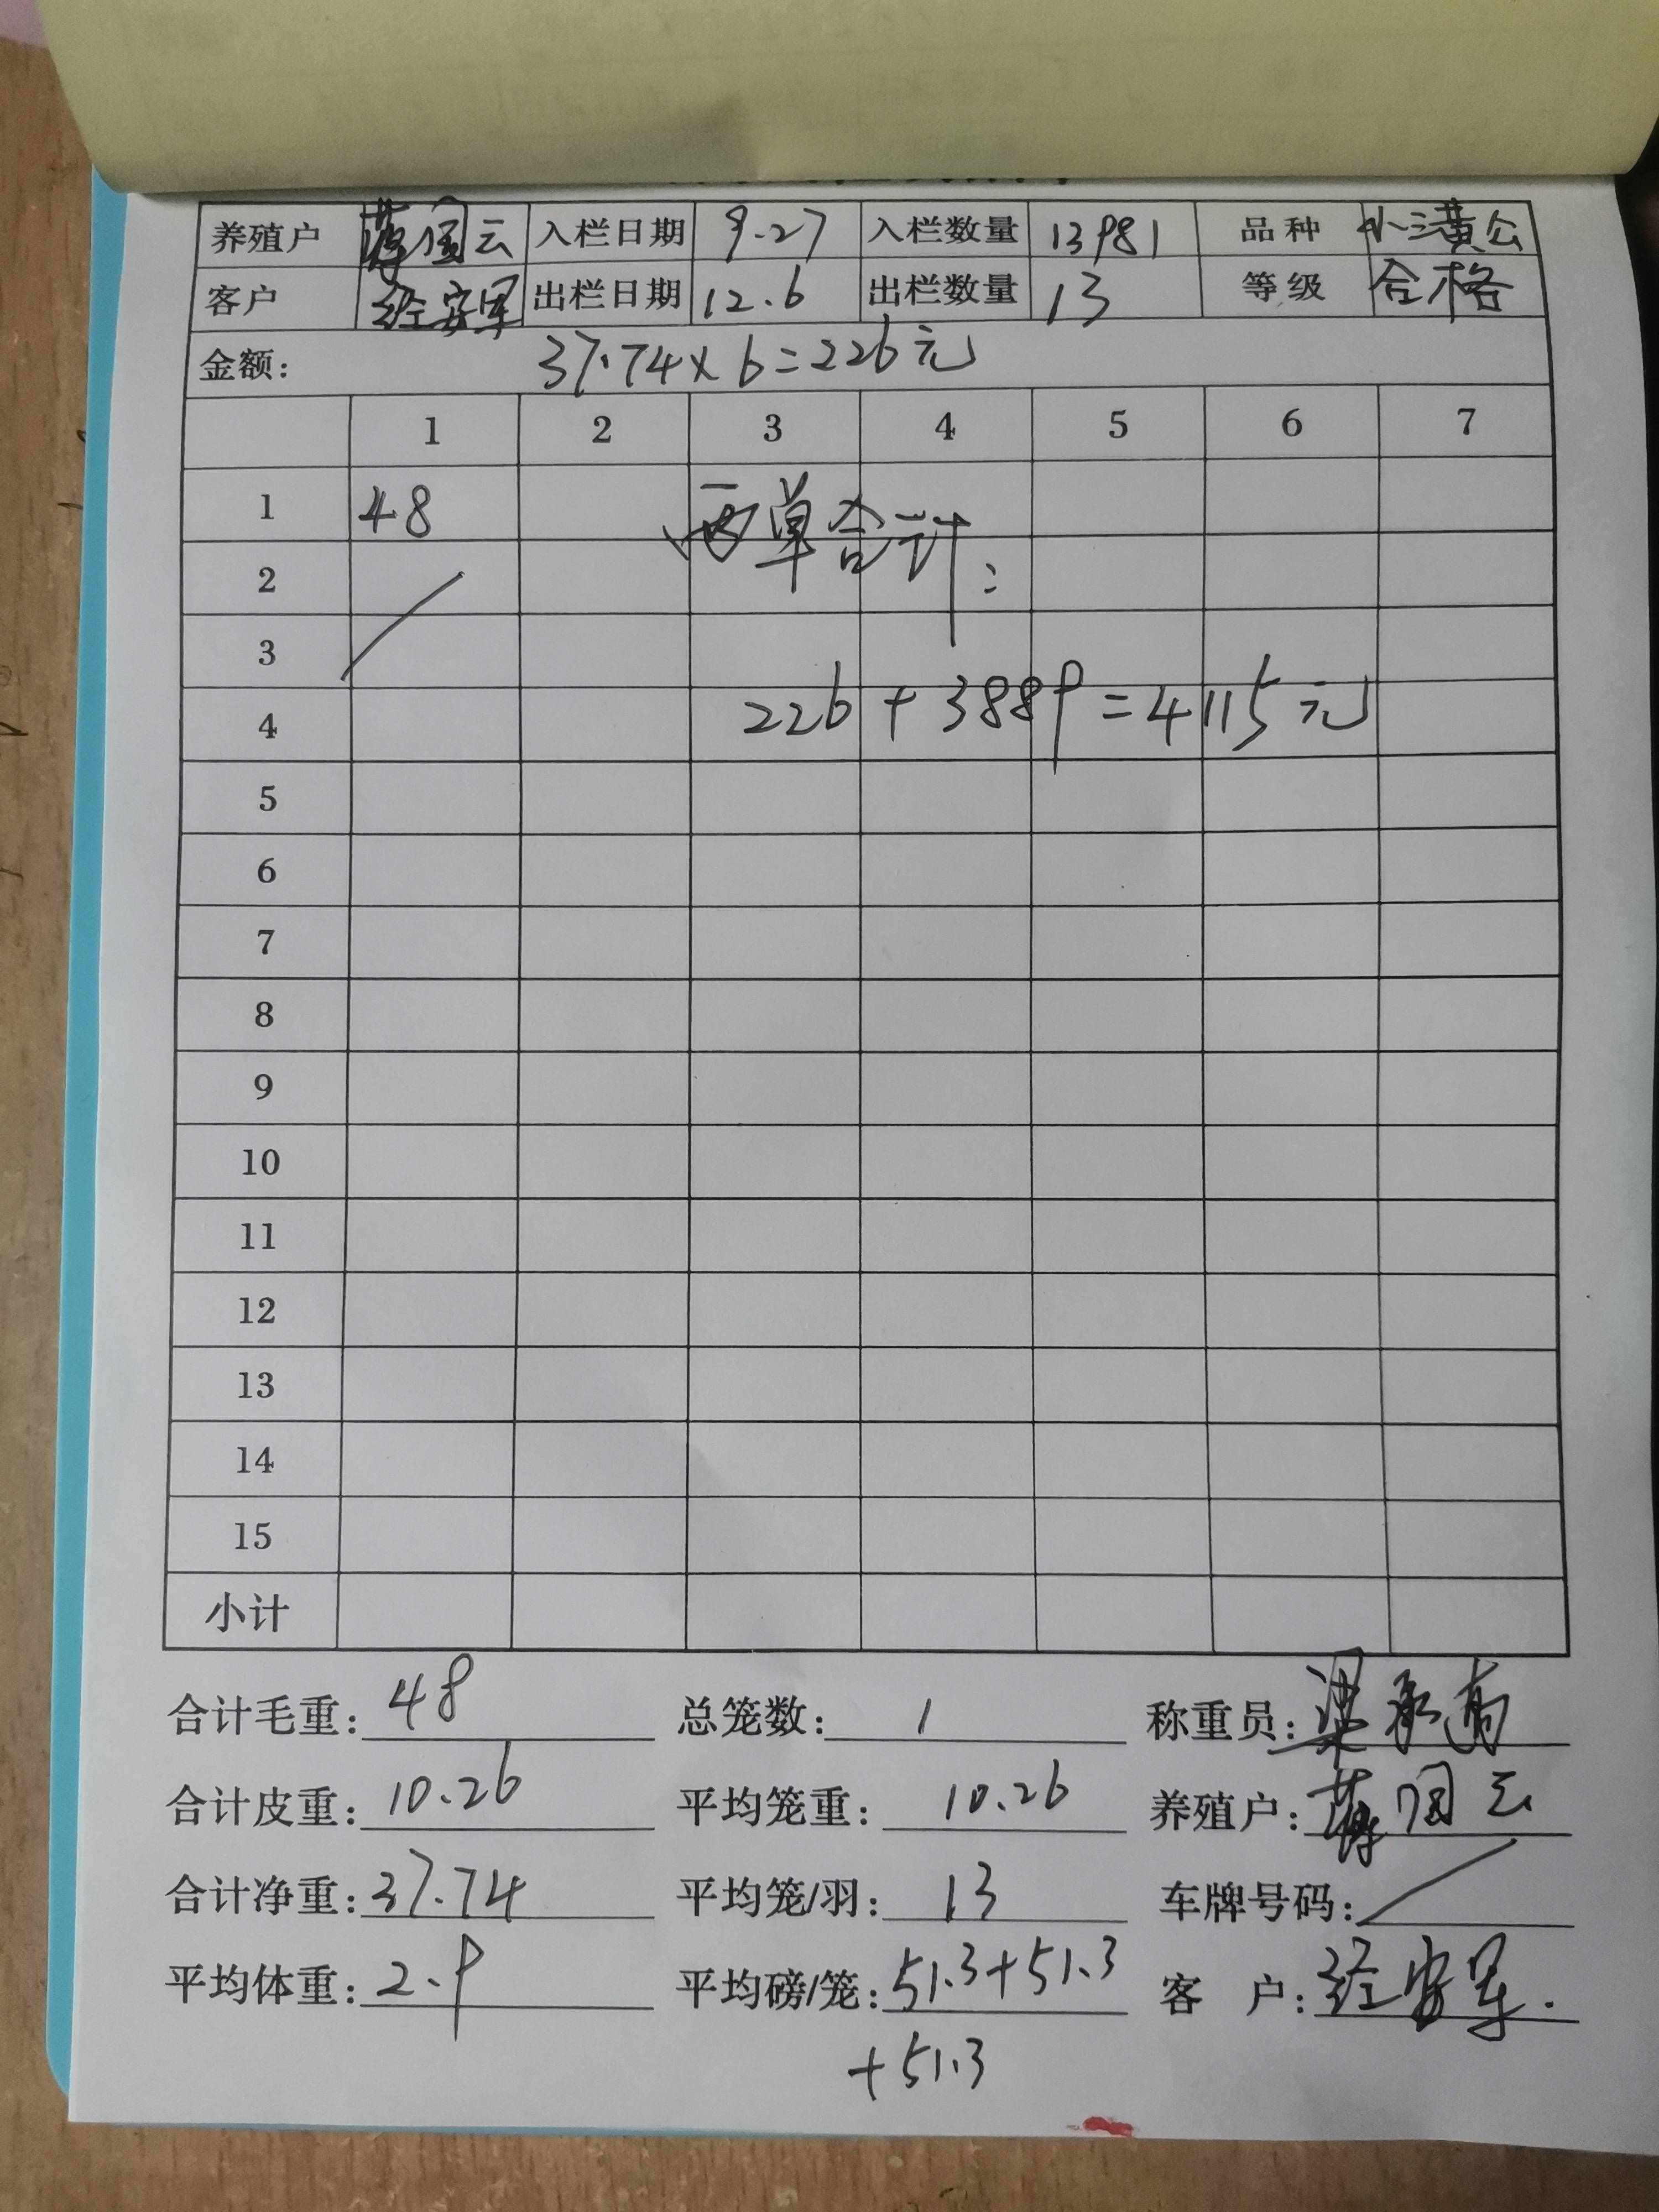 养殖户 薛国云 入栏日期 9.27 入栏数量 13981 品种 小三黄公
客户 经安军 出栏日期 12.6 出栏数量 13 等级 合格
金额: 37.74×6=226元
1 2 3 4 5 6 7
1 48
两单合计:
2
3
4 226+3889=4115元
5
6
7
8
9
10
11
12
13
14
15
小计
合计毛重: 48 总笼数: 1 称重员: 梁承高
合计皮重: 10.26 平均笼重: 10.26 养殖户: 薛国云
合计净重: 37.74 平均笼/羽: 13 车牌号码:
平均体重: 2.9 平均磅/笼: 51.3+51.3 客 户: 经安军.
+51.3